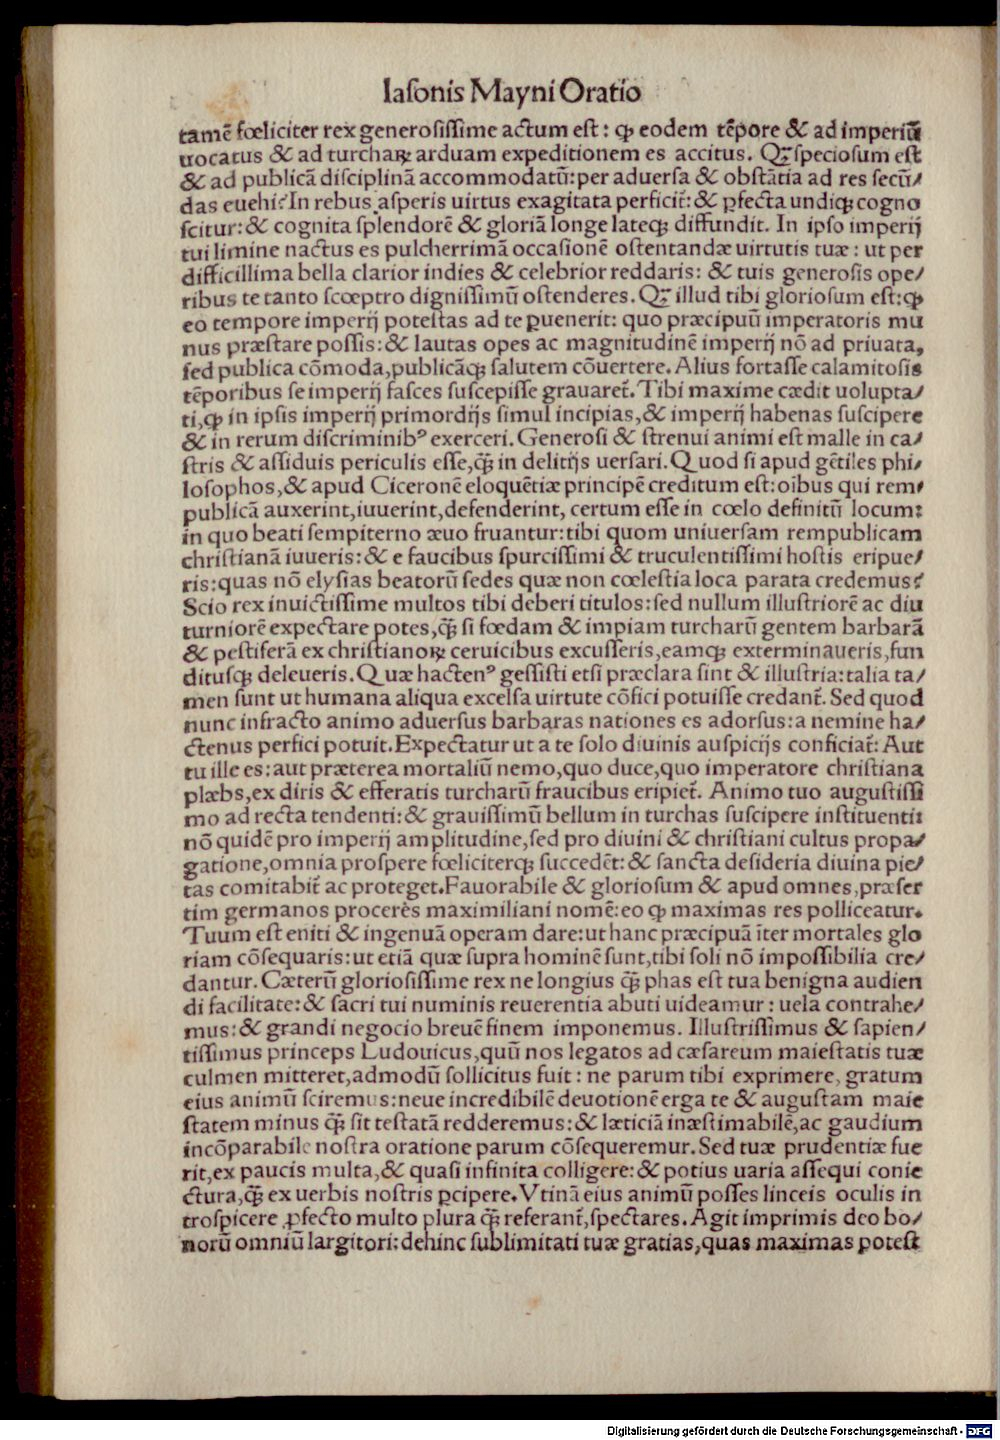 Iaſonis Mayni Oratio
tamē fœliciter rex generoſiſſime actum eſt: ꝙ eodem tēpore & ad imperiū
uocatus & ad turcharꝝ arduam expeditionem es accitus. Qꝫ ſpeciosum eſt
& ad publicā diſciplinā accommodatū: per aduerſa & obſtātia ad res ſecū/
das euehi? In rebus aſperis uirtus exagitata perficit̄: & ꝓfecta undiqꝫ cogno
ſcitur: & cognita ſplendorē & gloriā longe lateqꝫ diffundit. In ipſo imperij
tui limine nactus es pulcherrimā occaſionē oſtentandæ uirtutis tuæ: ut per
difficillima bella clarior indies & celebrior reddaris: & tuis generoſis ope/
ribus te tanto ſcœptro digniſſimū oſtenderes. Qꝫ illud tibi glorioſum eſt: ꝙ
eo tempore imperij poteſtas ad te ꝑuenerit: quo præcipuū imperatoris mu
nus præſtare poſſis: & lautas opes ac magnitudinē imperij nō ad priuata,
ſed publica cōmoda, publicāqꝫ ſalutem cōuertere. Alius fortaſſe calamitoſis
tēporibus ſe imperij faſces ſuſcepiſſe grauaret̄. Tibi maxime cædit uolupta/
ti, ꝙ in ipſis imperij primordijs ſimul incipias, & imperij habenas ſuſcipere
& in rerum diſcriminibꝰ exerceri. Generoſi & ſtrenui animi eſt malle in ca/
ſtris & aſſiduis periculis eſſe, q̄ꝫ in delitijs uerſari. Quod ſi apud gētiles phi/
loſophos, & apud Ciceronē eloquētiæ principē creditum eſt: oībus qui rem/
publicā auxerint, iuuerint, defenderint, certum eſſe in cœlo definitū locum:
in quo beati ſempiterno æuo fruantur: tibi quom uniuerſam rempublicam
chriſtianā iuueris: & e faucibus ſpurciſſimi & truculentiſſimi hoſtis eripue/
ris: quas nō elyſias beatorū ſedes quæ non cœleſtia loca parata credemus?
Scio rex inuictiſſime multos tibi deberi titulos: ſed nullum illuſtriorē ac diu
turniorē expectare potes, q̄ꝫ ſi fœdam & impiam turcharū gentem barbarā
& peſtiferā ex chriſtianorꝝ ceruicibus excuſſeris, eamqꝫ exterminaueris, fun
dituſqꝫ deleueris. Quæ hactenꝰ geſſiſti etſi præclara ſint & illuſtria: talia ta/
men ſunt ut humana aliqua excelſa uirtute cōfici potuiſſe credant̄. Sed quod
nunc infracto animo aduerſus barbaras nationes es adorſus: a nemine ha/
ctenus perfici potuit. Expectatur ut a te ſolo diuinis auſpicijs conficiat̄: Aut
tu ille es: aut præterea mortaliū nemo, quo duce, quo imperatore chriſtiana
plæbs, ex diris & efferatis turcharū fraucibus eripiet̄. Animo tuo auguſtiſſi
mo ad recta tendenti: & grauiſſimū bellum in turchas ſuſcipere inſtituenti:
nō quidē pro imperij amplitudine, ſed pro diuini & chriſtiani cultus propa/
gatione, omnia proſpere fœliciterqꝫ ſuccedēt: & ſancta deſideria diuina pie/
tas comitabit̄ ac proteget. Fauorabile & glorioſum & apud omnes, præſer
tim germanos procerēs maximiliani nomē: eo ꝙ maximas res polliceatur.
Tuum eſt eniti & ingenuā operam dare: ut hanc præcipuā īter mortales glo
riam cōſequaris: ut etiā quæ ſupra hominē ſunt, tibi ſoli nō impoſſibilia cre/
dantur. Cæterū glorioſiſſime rex ne longius q̄ꝫ phas eſt tua benigna audien
di facilitate: & ſacri tui numinis reuerentia abuti uideamur: uela contrahe/
mus: & grandi negocio breuē finem imponemus. Illuſtriſſimus & ſapien/
tiſſimus princeps Ludouicus, quū nos legatos ad cæſareum maieſtatis tuæ
culmen mitteret, admodū ſollicitus fuit: ne parum tibi exprimere, gratum
eius animū ſciremus: neue incredibilē deuotionē erga te & auguſtam maie
ſtatem minus q̄ꝫ ſit teſtatā redderemus: & læticiā inæſtimabilē, ac gaudium
incōparabile noſtra oratione parum cōſequeremur. Sed tuæ prudentiæ fue
rit, ex paucis multa, & quaſi infinita colligere: & potius uaria aſſequi conie
ctura, q̄ꝫ ex uerbis noſtris ꝑcipere. Vtinā eius animū poſſes linceis oculis in
troſpicere ꝓfecto multo plura q̄ꝫ referant̄, ſpectares. Agit imprimis deo bo/
norū omniū largitori: dehinc ſublimitati tuæ gratias, quas maximas poteſt
Digitalisierung gefördert durch die Deutsche Forschungsgemeinschaft - DFG